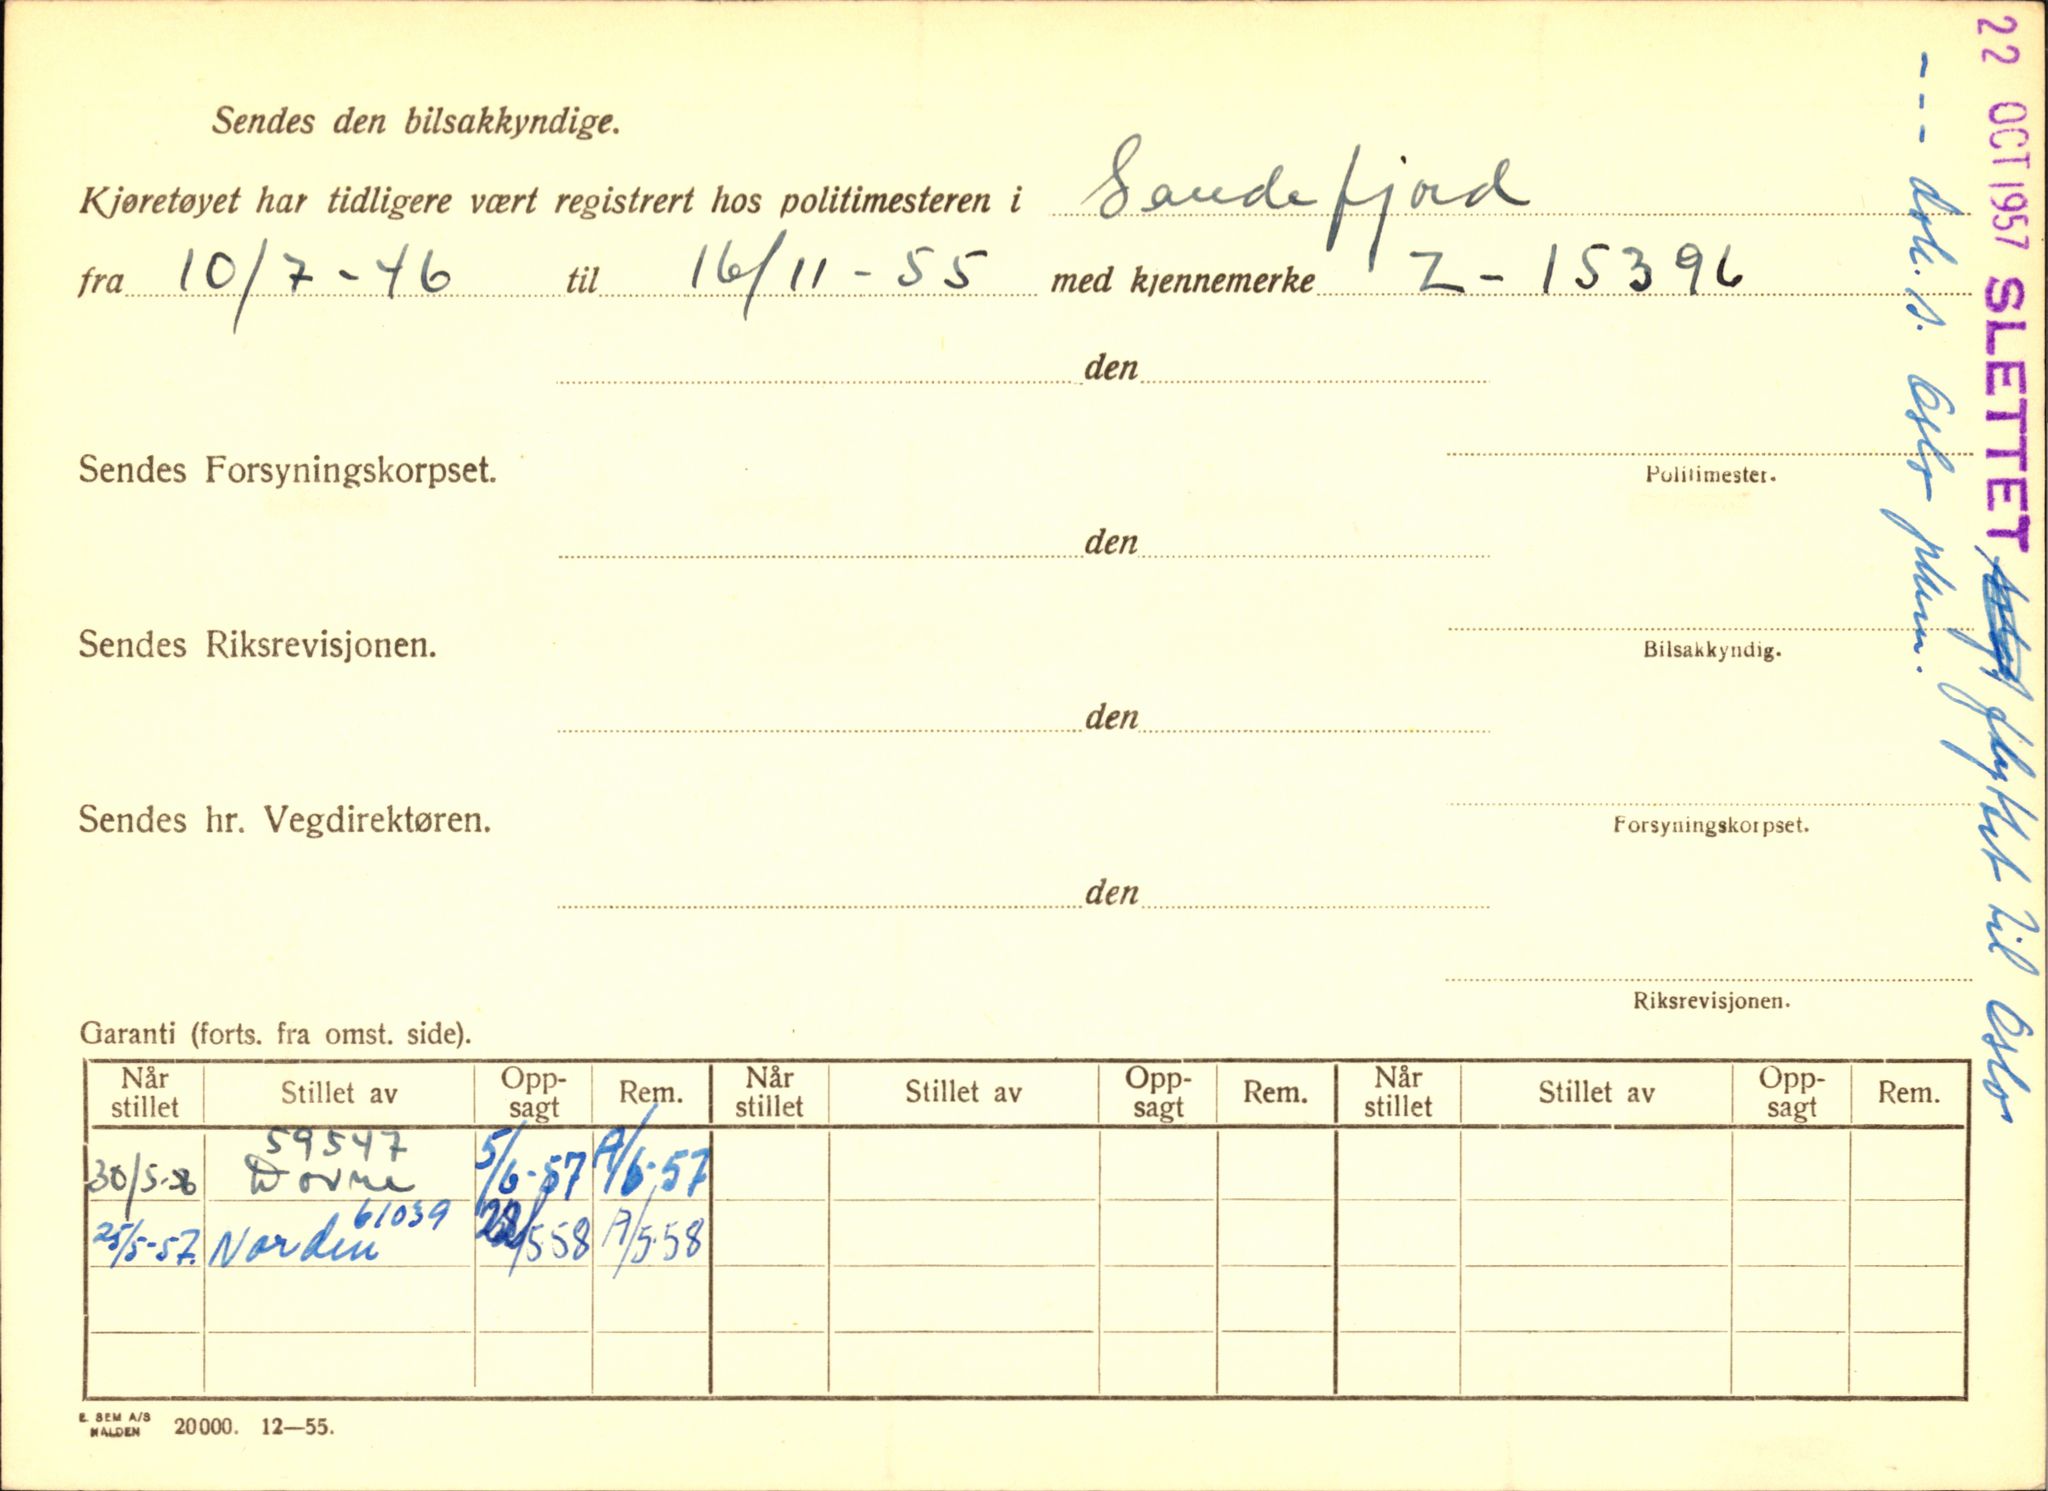 Sendes den bilsakkyndige.
Kjøretøyet har tidligere vært registrert hos politimesteren i Sandefjord
fra 10/7-46 til 16/11-55 med kjennemerke Z-15396
den
Politimester.
Sendes Forsyningskorpset.
den
Bilsakkyndig.
Sendes Riksrevisjonen.
den
Forsyningskorpset.
Sendes hr. Vegdirektøren.
den
Riksrevisjonen.
Garanti (forts. fra omst. side).
Når stillet Stillet av Opp-sagt Rem. Når stillet Stillet av Opp-sagt Rem. Når stillet Stillet av Opp-sagt Rem.
59547
30/5-56 Dovre 5/6-57 A/6-57
61039
25/5-57. Norden 28/5 58 A/5-58
E. SEM A/S
HALDEN
20000. 12—55.
22 OCT 1957 SLETTET flyttet til Oslo
--- dok. s. Oslo